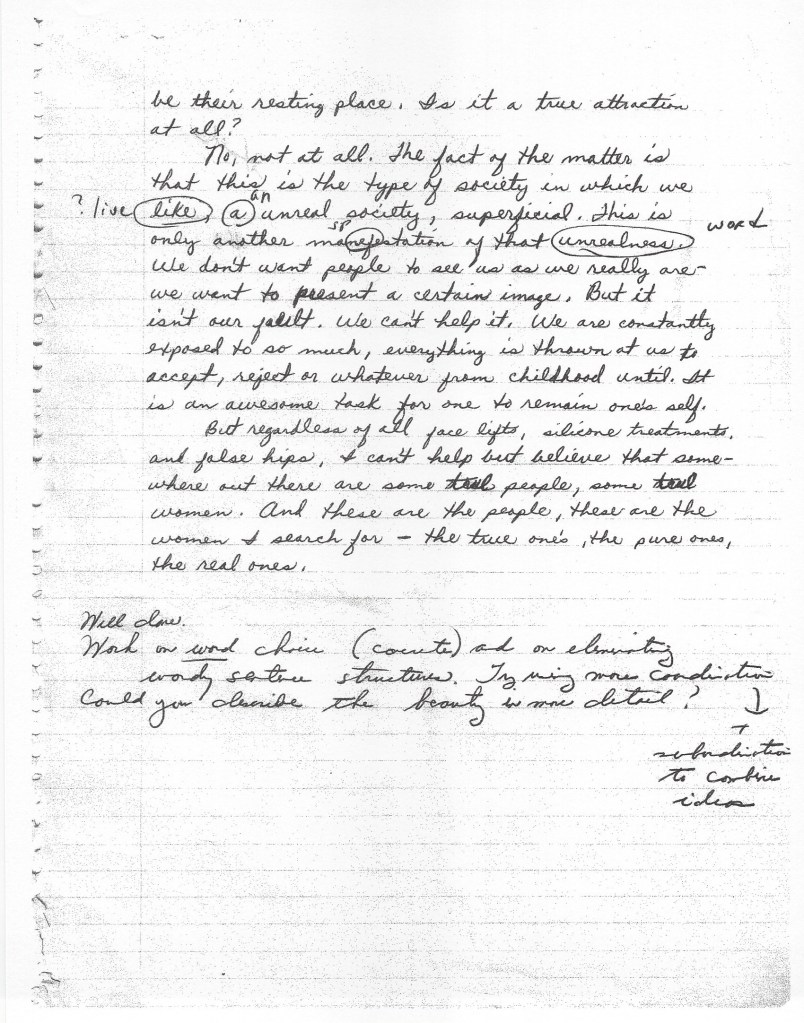 be their resting place. Is it a true attraction
at all?
No, not at all. The fact of the matter is
that this is the type of society in which we
an
? live like, a unreal society, superficial. This is
sp
word
only another manefestation of that unrealness.
We don't want people to see us as we really are-
we want to present a certain image. But it
isn't our fault. We can't help it. We are constantly
exposed to so much, everything is thrown at us to
accept, reject or whatever from childhood until. It
is an awesome task for one to remain one's self.
But regardless of all face lifts, silicone treatments,
and false hips, I can't help but believe that some-
where out there are some people, some
women. And these are the people, these are the
women I search for - the true one's, the pure ones,
the real ones.
Well done.
Work on word choice (concrete) and on eliminating
wordy sentence structures. Try using more coordination
Could you describe the beauty in more detail?
+
subordination
to combine
ideas